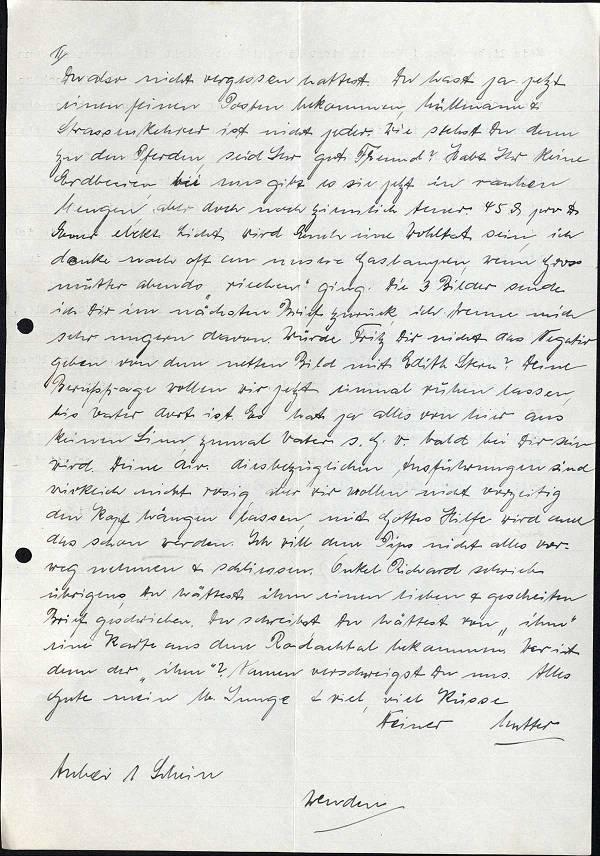 II/
Du also nicht vergessen hattest. Du hast ja jetzt
einen feinen Posten bekommen, Müllmann &
Strassenkehrer ist nicht jeder. Wie stehst Du denn
zu den Pferden, seid Ihr gut Freund? Habt Ihr keine
Erdbeeren bei uns gibt es sie jetzt in rauhen
Mengen, aber doch noch ziemlich teuer. 45 pro
elektr. Licht wird Euch eine Wohltat sein, ich
denke noch oft an unsere Gaslampen, wenn Gross
mutter abends "riechen" ging. Die 3 Bilder sende
ich Dir im nächsten Brief zurück, ich trenne mich
sehr ungern davon. Würde Fritz Dir nicht das Negativ
geben von dem netten Bild mit Edith Stern? Deine
Berufsfrage wollen wir jetzt einmal ruhen lassen,
bis Vater dort ist. Es hat ja alles von hier aus
keinen Sinn zumal Vater s. G. w. bald bei Dir sein
wird. Deine div. diesbezüglichen Ausführungen sind
wirklich nicht rosig aber wir wollen nicht vorzeitig
den Kopf hängen lassen, mit Gottes Hilfe wird auch
das schon werden. Ich will dem Pips nicht alles vor-
weg nehmen & schliessen. Onkel Richard schrieb
übrigens, Du hättest ihm einen lieben & gescheiten
Brief geschrieben. Du schreibst Du hättest von "ihm"
eine Karte aus dem Rodachtal bekommen. Wer ist
denn der "ihm"? Namen verschweigst Du uns. Alles
Gute mein lb. Junge & viel, viel Küsse
Deiner Mutter
Anbei 1 Schein
wenden